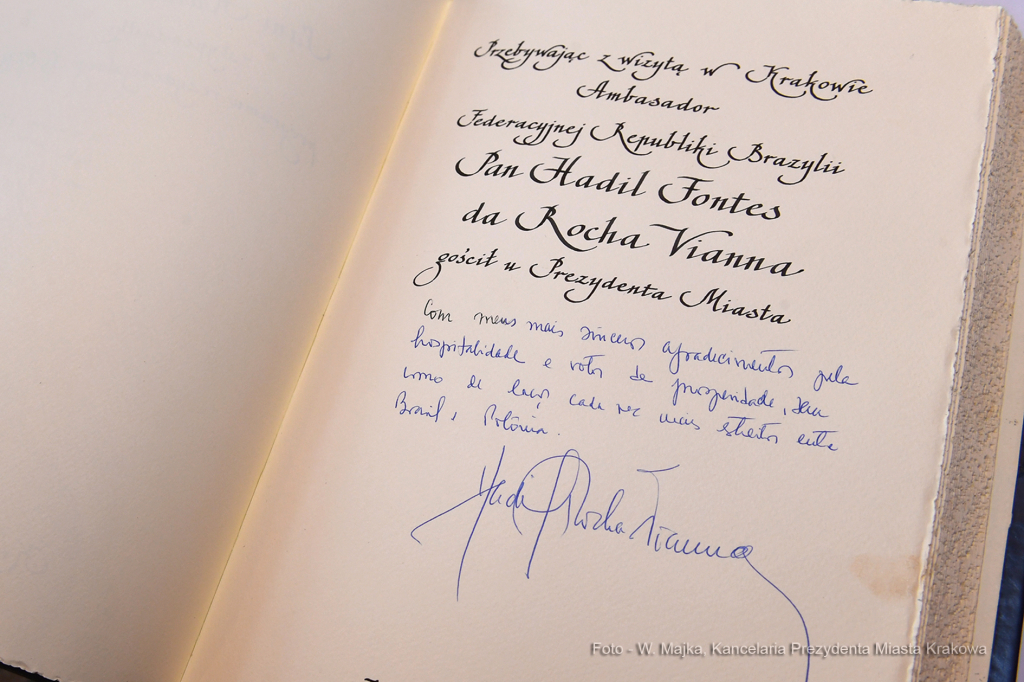 Przebywając z wizytą w Krakowie
Ambasador
Federacyjnej Republiki Brazylii
Pan Hadil Fontes
da Rocha Vianna
gościł u Prezydenta Miasta
Com meus mais sinceros agradecimentos pela
hospitalidade e votos de prosperidade, bem
como de laços cada vez mais estreitos entre
Brasil e Polônia.
Hadil Rocha Vianna
Foto - W. Majka, Kancelaria Prezydenta Miasta Krakowa